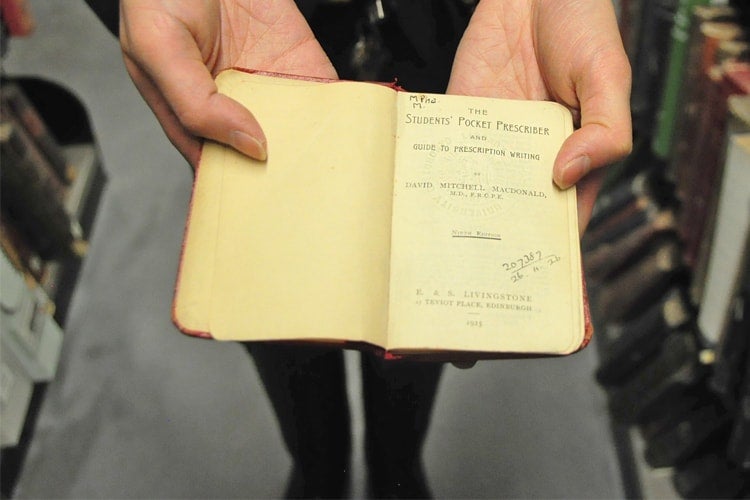 M.Pha
M.
THE
STUDENTS' POCKET PRESCRIBER
AND
GUIDE TO PRESCRIPTION WRITING
BY
DAVID MITCHELL MACDONALD,
M.D., F.R.C.P.E.
NINTH EDITION
207387
26.11.26
E. & S. LIVINGSTONE
17 TEVIOT PLACE, EDINBURGH
1925